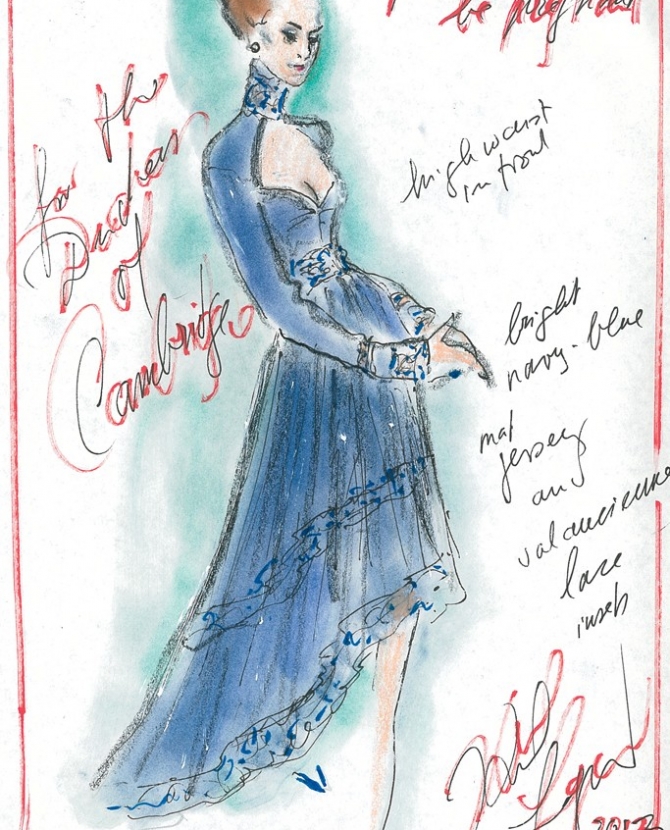 be pregnant
for the
Duchess
of
Cambridge
high waist
in front
bright
navy-blue
mat
jersey
and
valancienne
lace
insets
2012